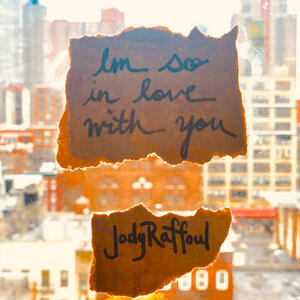 Im so
in love
with you
JodyRaffoul